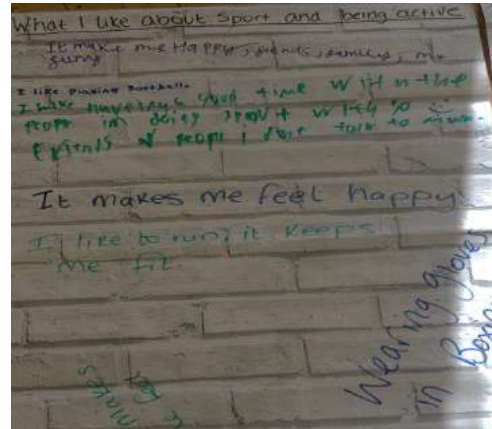 What I like about Sport and being active
It make me Happy, friends, families, me
I like playing football.
I like having a good time with the
people im doing sport with so
friends & people I dont talk to
It makes me feel happy
I like to run, it keeps
me fit.
Wearing gloves
in Boxing
it makes